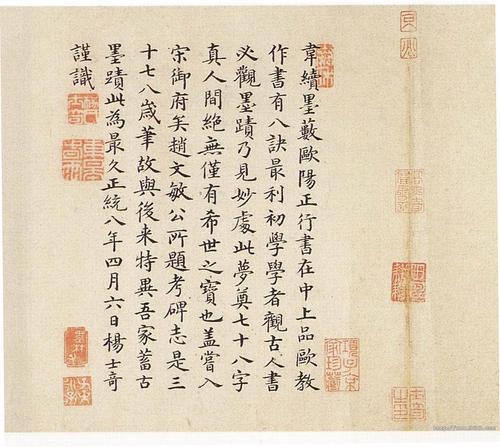 韋續墨藪歐陽正行書在中上品歐教
作書有八訣最利初學學者觀古人書
必觀墨蹟乃見妙處此夢奠七十八字
真人間絶無僅有希世之寶也蓋嘗入
宋御府矣趙文敏公所題考碑志是三
十七八歲筆故與後来特異吾家蓄古
墨蹟此為最久正統八年四月六日楊士奇
謹識